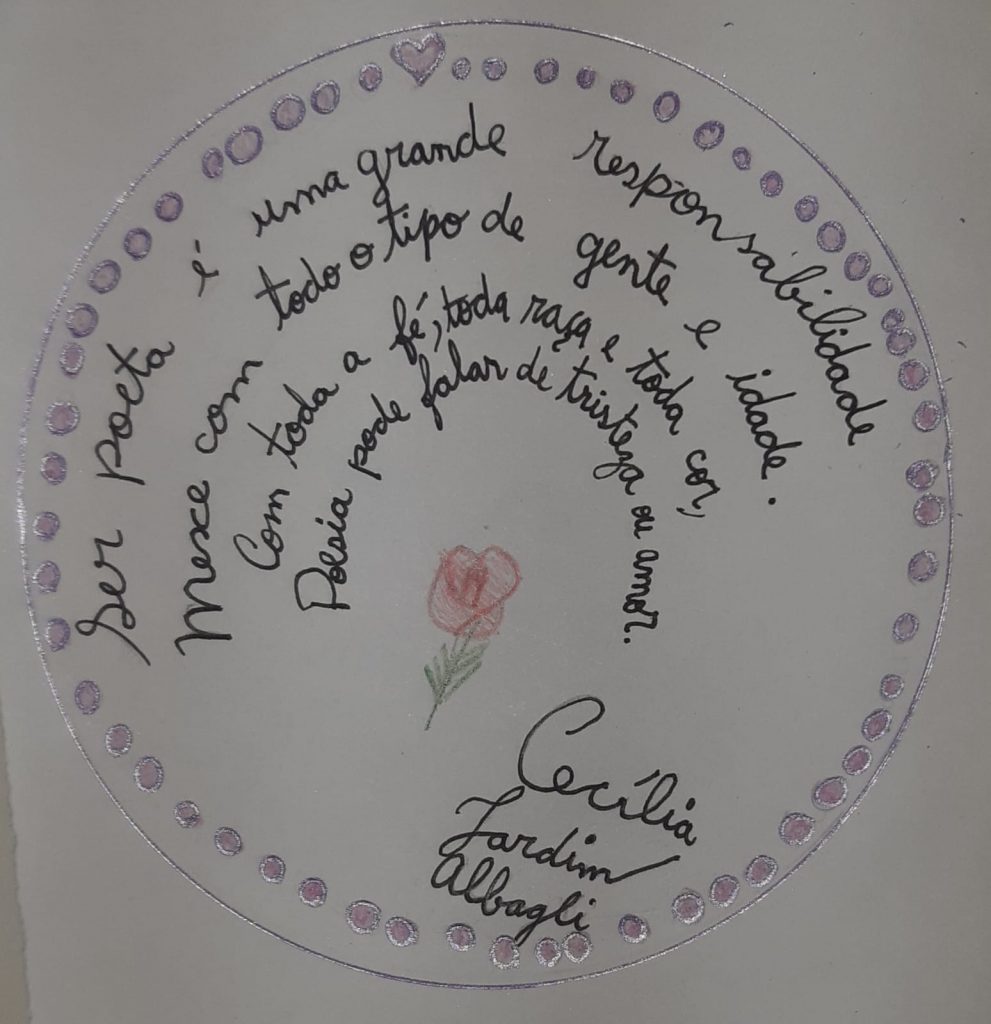 Ser poeta é uma grande responsabilidade
Mexe com todo o tipo de gente e idade.
Com toda a fé, toda raça e toda cor,
Poesia pode falar de tristeza ou amor.
Cecília
Jardim
Albagli